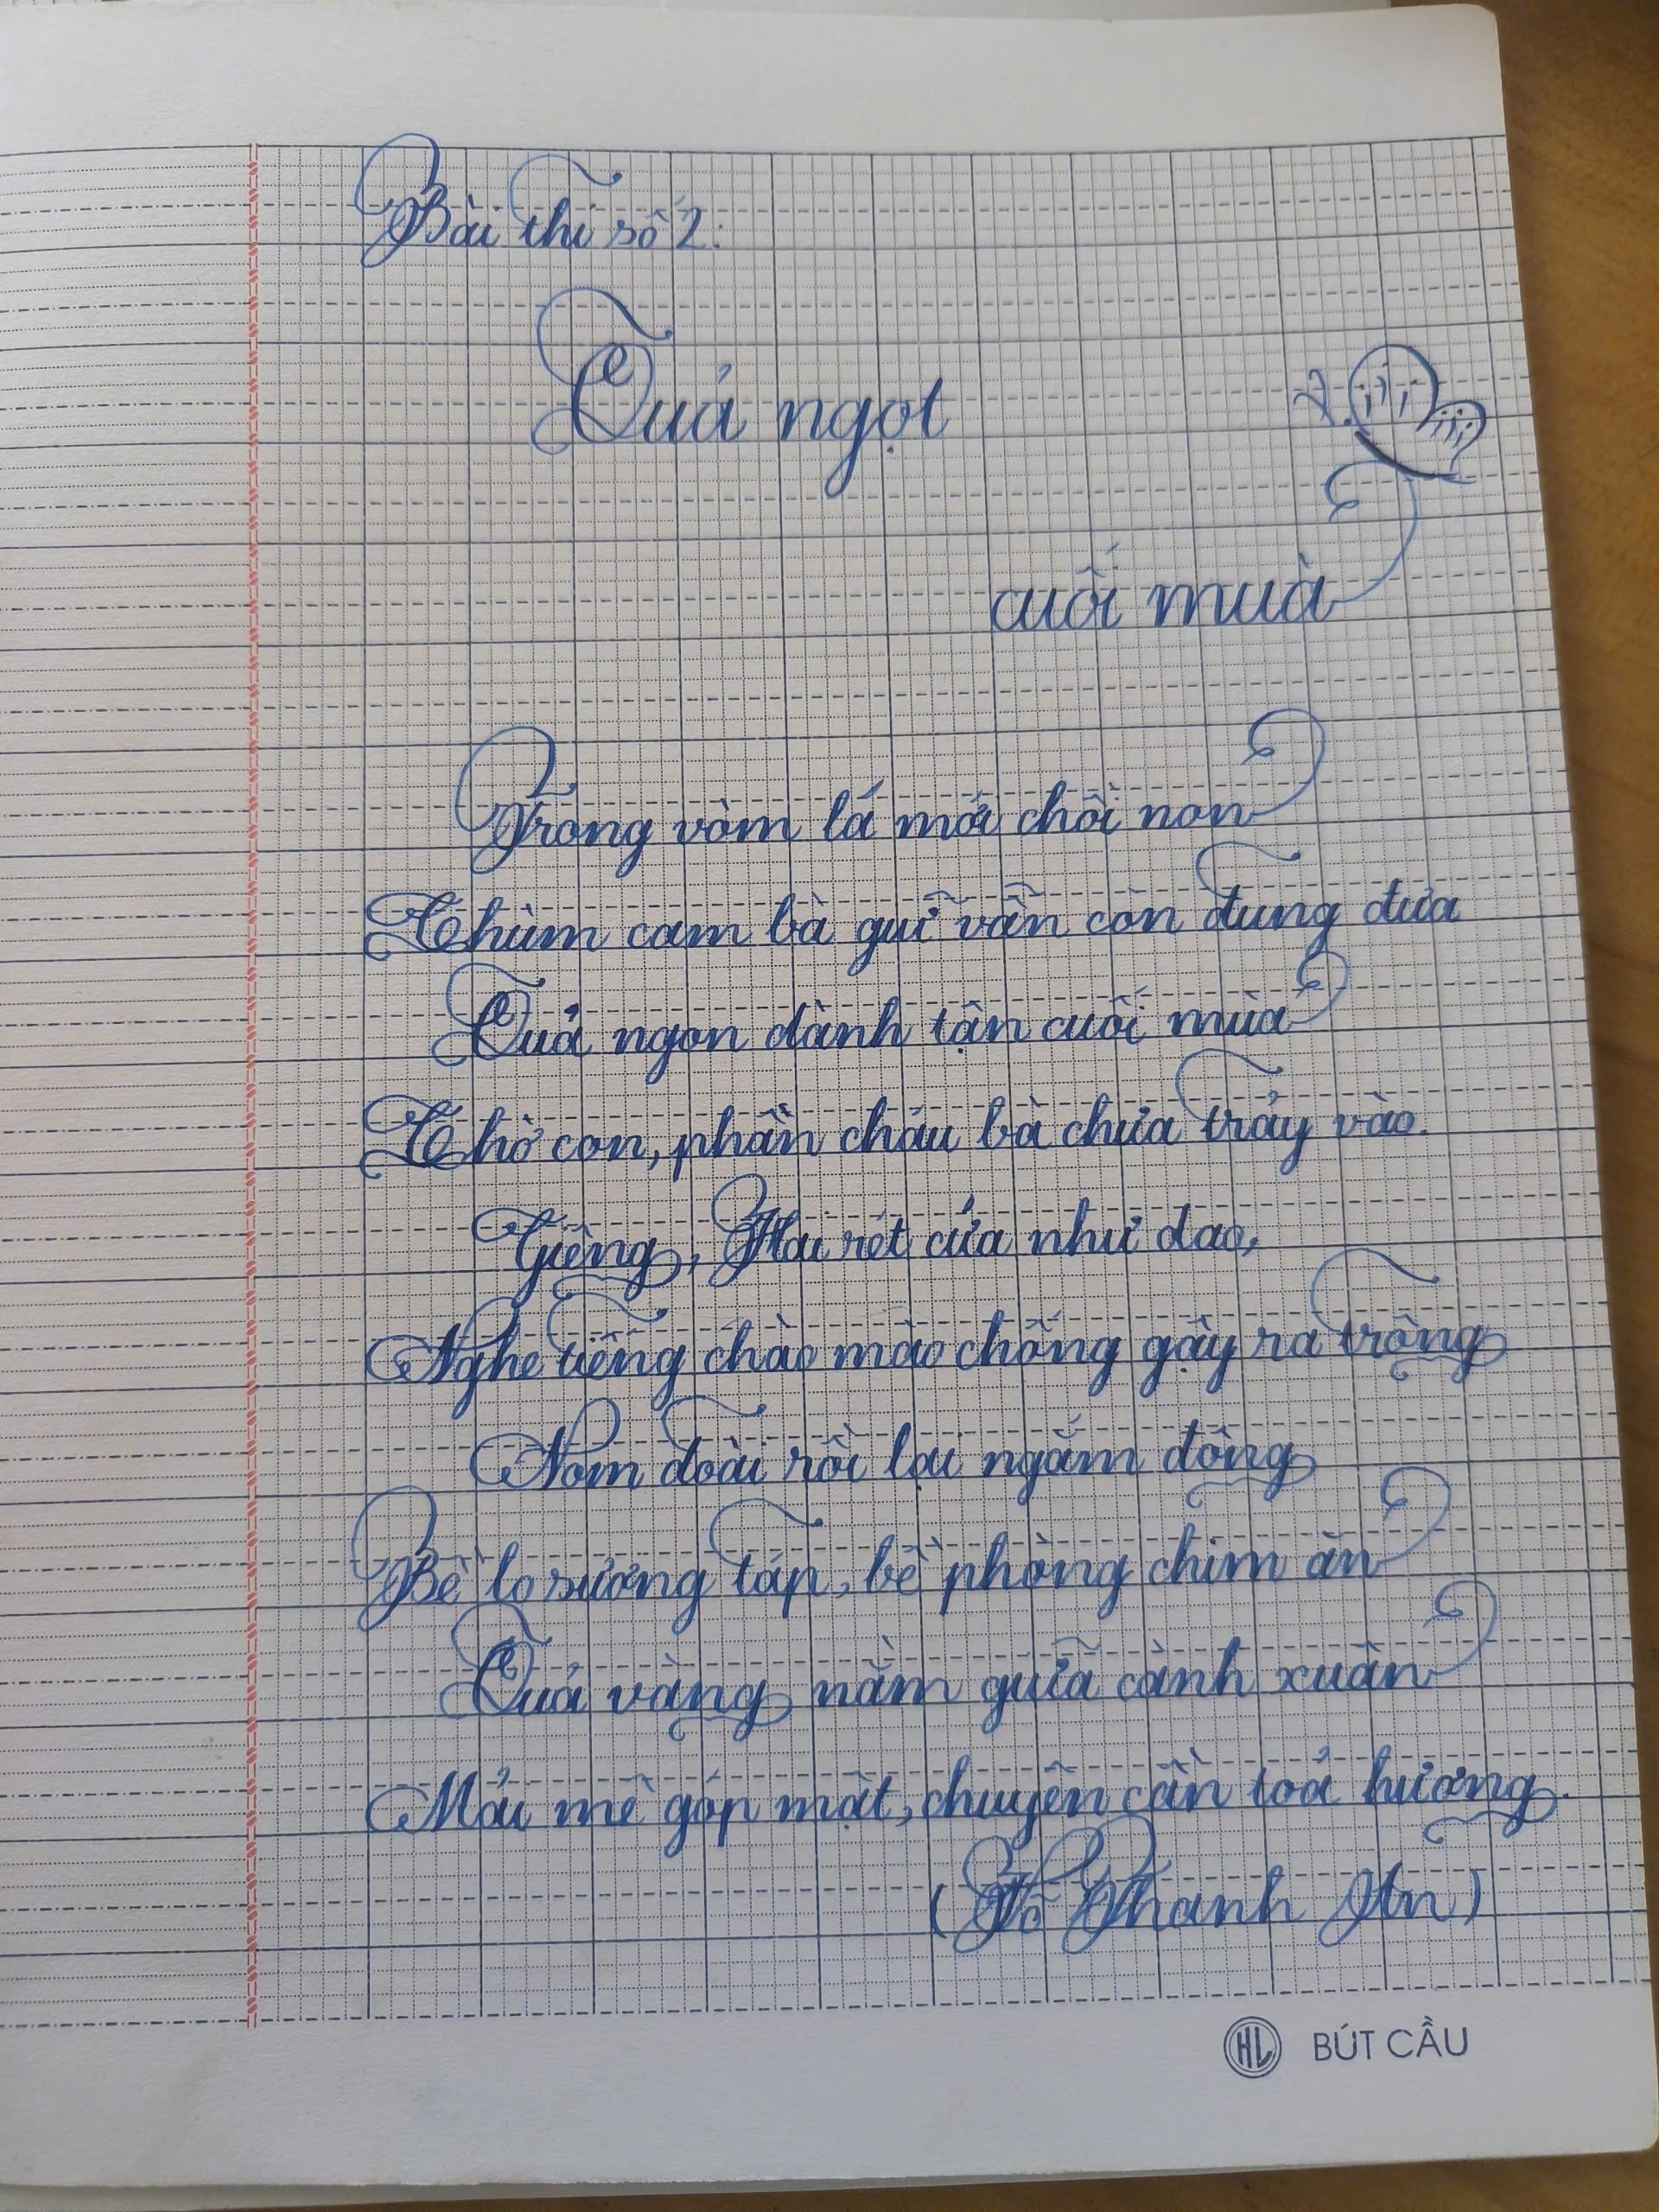 Bài thi số 2:
Quả ngọt
cuối mùa
Trong vòm lá mới chồi non
Chùm cam bà giữ vẫn còn đung đưa
Quả ngon dành tận cuối mùa
Chờ con, phần cháu bà chưa trảy vào.
Giêng, Hai rét cứa như dao,
Nghe tiếng chào mào chống gậy ra trông
Nom đoài rồi lại ngắm đông
Bề lo sương táp, bề phòng chim ăn
Quả vàng nằm giữa cành xuân
Mải mê góp mật, chuyên cần toả hương.
(Võ Thanh An)
HL BÚT CẦU